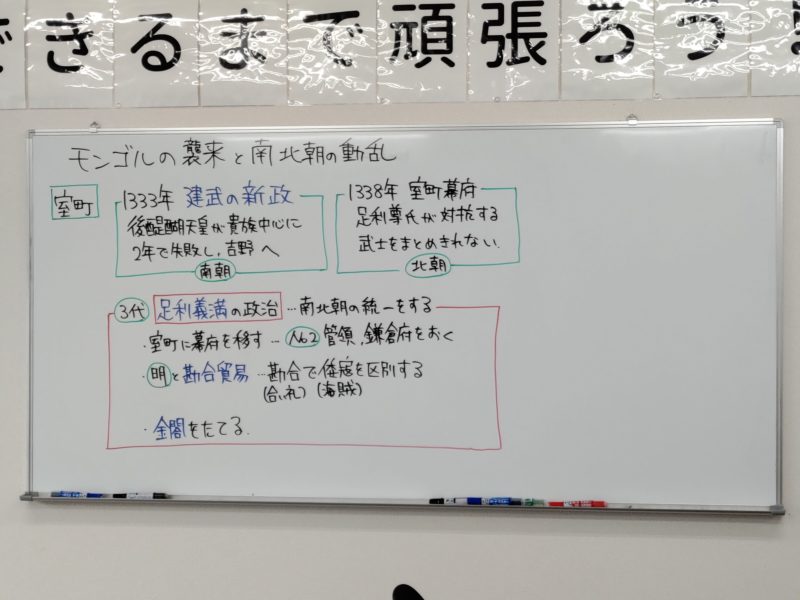 できるまで頑張ろう!
モンゴルの襲来と南北朝の動乱
室町
1333年 建武の新政
後醍醐天皇が貴族中心に
2年で失敗し、吉野へ
南朝
1338年 室町幕府
足利尊氏が対抗する
武士をまとめきれない。
北朝
3代 足利義満の政治 …南北朝の統一をする
・室町に幕府を移す … No.2 管領、鎌倉府をおく
・明と勘合貿易 …勘合で倭寇を区別する
(合い札) (海賊)
・金閣をたてる.